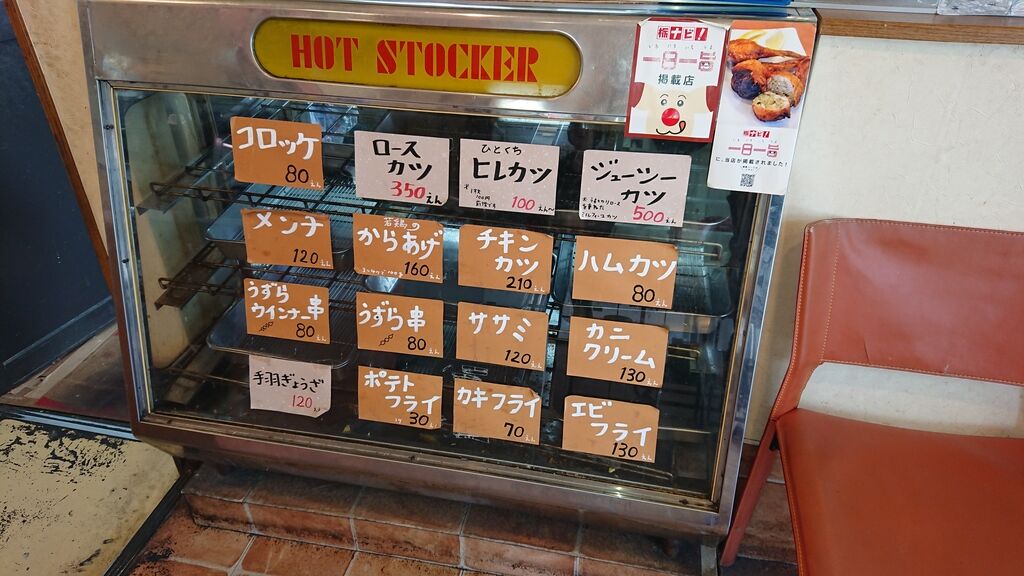 HOT STOCKER
栃ナビ!
一日一善
掲載店
栃ナビ!
一日一善
に、当店が掲載されました!
コロッケ
80えん
ロース
カツ
350えん
ひとくち
ヒレカツ
100えん〜
ジューシー
カツ
500えん
メンチ
120えん
若鶏の
からあげ
160えん
チキン
カツ
210えん
ハムカツ
80えん
うずら
ウインナー串
80えん
うずら串
80えん
ササミ
120えん
カニ
クリーム
130えん
手羽ぎょうざ
120えん
ポテト
フライ
30えん
カキフライ
70えん
エビ
フライ
130えん